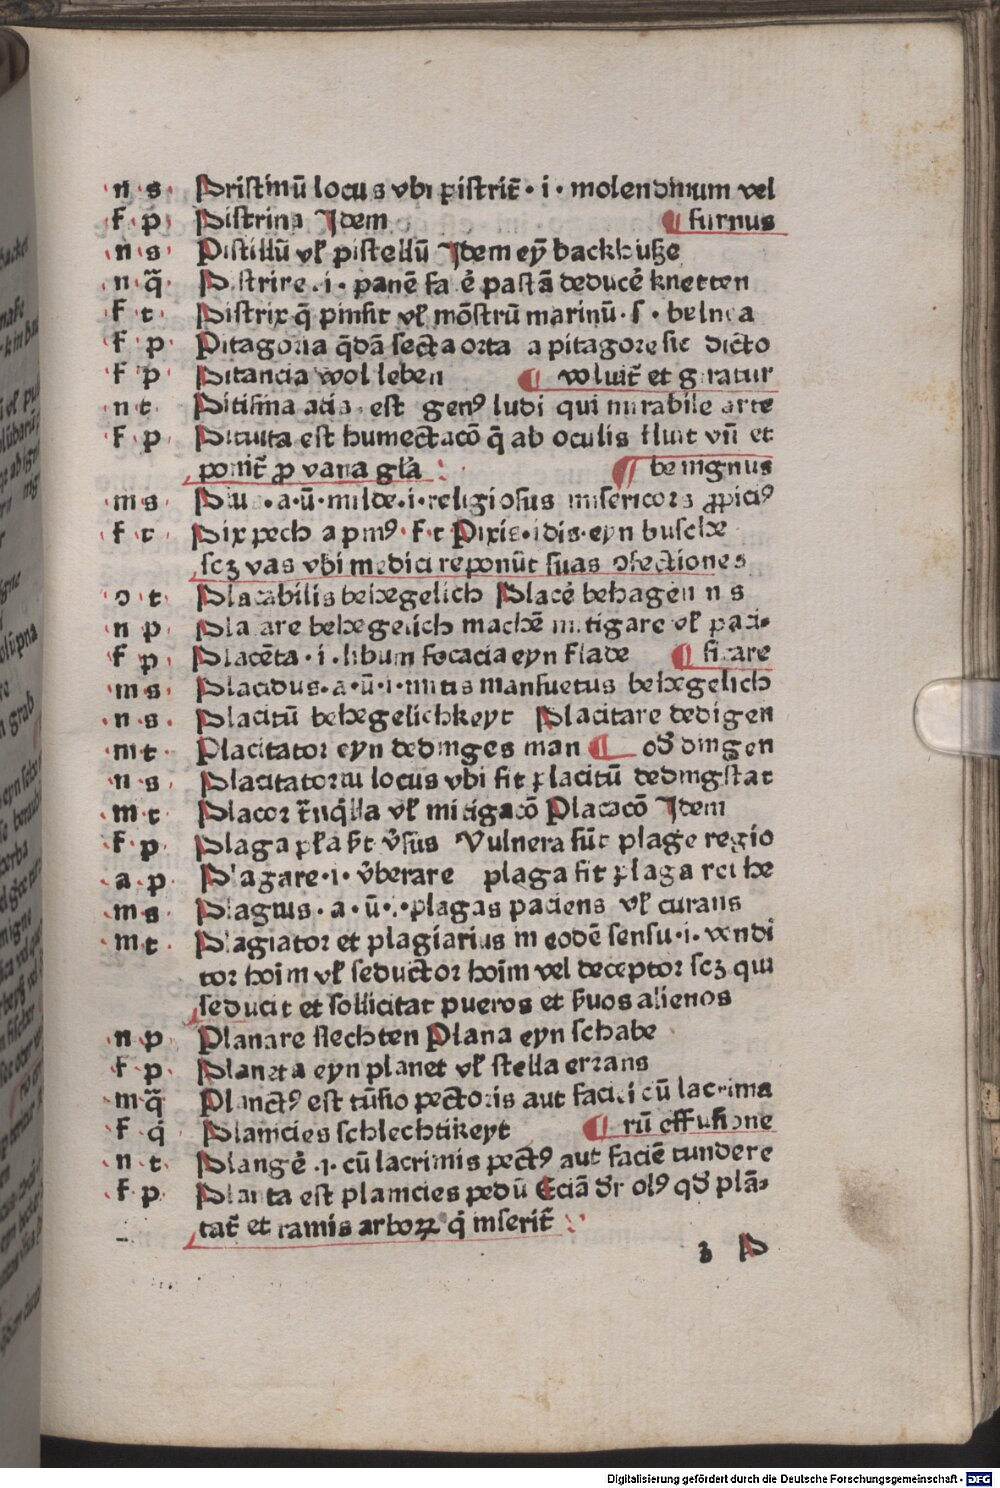 n s Pristinū locus vbi pistrit̄ · i · molendinum vel
f p Pistrina Idem ¶ furnus
n s Pistillū vł pistellū Idem eyn̄ backhußze
n q̄ Pistrire · i · panē facē pastā deducē knetten
f t Pistrix q̄ pinsit vł mōstrū marinū · s · belua
f p Pitagoria q̄dā secta orta a pitagore sic dicto
f p Pitancia wol leben ¶ woluit̄ et giratur
n t Pitisma atis est genꝰ ludi qui mirabile arte
f p Pituita est humectacō q̄ ab oculis fluit vn̄ et
ponit̄ p vana gła ¶ benignus
m s Pius · a · ū · milde · i · religiosus misericors ꝓpiciꝰ
f t Pix pech a pmꝰ f · t Pixis · idis · eyn busche
scꝫ vas vbi medici reponūt suas ɔfectiones
o t Placabilis behegelich Placē behagen n s
n p Placare behegelich machē mitigare vł paci-
f p Placēta · i · libum focacia eyn flade ¶ ficare
m s Placidus · a · ū · i · mitis mansuetus behegelich
n s Placitū behegelichkeyt Placitare dedigen
m t Placitator eyn dedinges man ¶ od̄ dingen
n s Placitatoriū locus vbi fit placitū dedingstat
m t Placor t̄nq̄lla vł mitigacō Placacō Idem
f p Plaga pła h̄t v̄sus Vulnera sūt plage regio
a p Plagare · i · v̄berare plaga fit plaga rethe
m s Plagius · a · ū · i · plagas paciens vł curans
m t Plagiator et plagiarius in eodē sensu · i · vendi
tor hoim vł seductor hoim vel deceptor scꝫ qui
seducit et sollicitat pueros et s̄uos alienos
n p Planare slechten Plana eyn schabe
f p Planeta eyn planet vł stella errans
m q̄ Planctꝰ est tūsio pectoris aut faciei cū lacrima
f q̄ Planicies schlechtikeyt ¶ rū effusione
n t Plangē · i · cū lacrimis pectꝰ aut faciē tundere
f p Planta est planicies pedū Eciā dr̄ olꝰ qd̄ plā-
tat̄ et ramis arboꝝ q̄ inserit̄
3 P
Digitalisierung gefördert durch die Deutsche Forschungsgemeinschaft - DFG